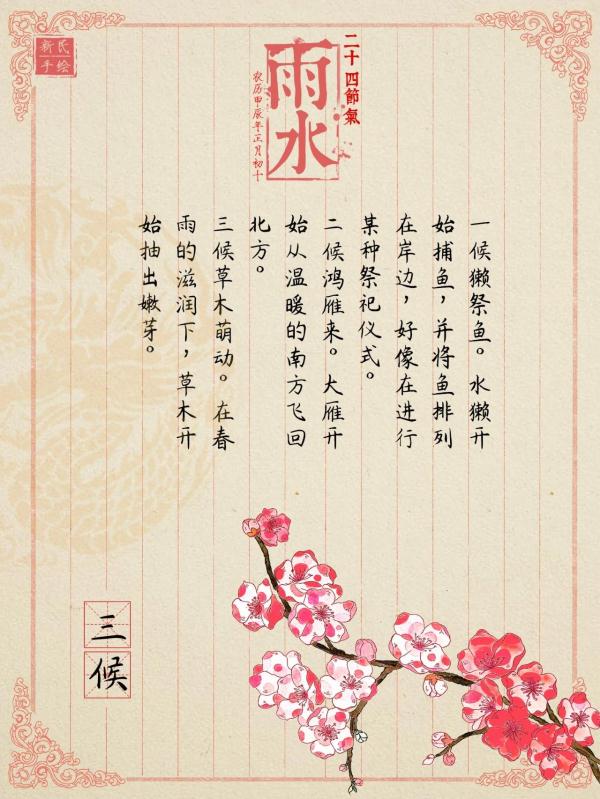 新民
手绘
二十四節氣
雨水
农历甲辰年正月初十
一候獭祭鱼。水獭开
始捕鱼，并将鱼排列
在岸边，好像在进行
某种祭祀仪式。
二候鸿雁来。大雁开
始从温暖的南方飞回
北方。
三候草木萌动。在春
雨的滋润下，草木开
始抽出嫩芽。
三候